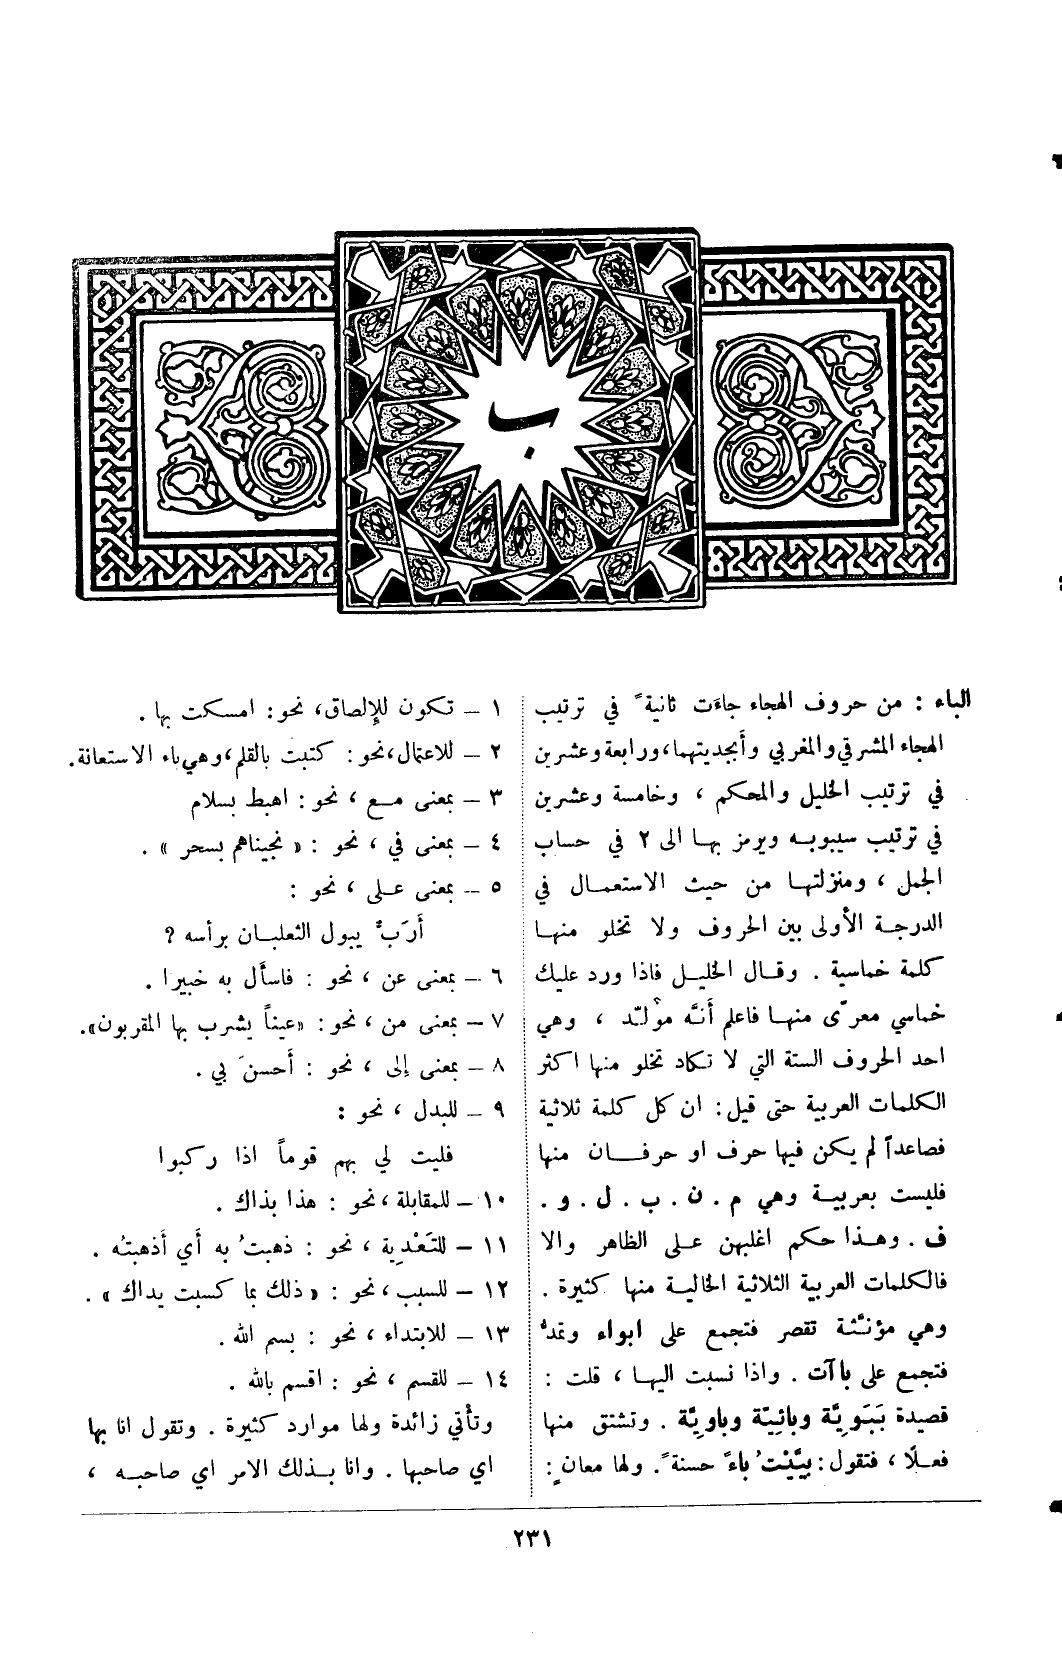 ب
الباء : من حروف الهجاء جاءَت ثانيةً في ترتيب
الهجاء المشرقي والمغربي وأبجديتهما، ورابعة وعشرين
في ترتيب الخليل والمحكم ، وخامسة وعشرين
في ترتيب سيبويه ويرمز بها الى ٢ في حساب
الجمل ، ومنزلتها من حيث الاستعمال في
الدرجة الأولى بين الحروف ولا تخلو منها
كلمة خماسية . وقال الخليل فاذا ورد عليك
خماسي معرّى منها فاعلم أنَّه مولَّد ، وهي
احد الحروف الستة التي لا تكاد تخلو منها اكثر
الكلمات العربية حتى قيل : ان كل كلمة ثلاثية
فصاعداً لم يكن فيها حرف او حرفان منها
فليست بعربية وهي م . ن . ب . ل . و .
ف . وهذا حكم اغلبهن على الظاهر والا
فالكلمات العربية الثلاثية الخالية منها كثيرة .
وهي مؤنَّثة تقصر فتجمع على ابواء وتمدُّ
فتجمع على باآت . واذا نسبت اليها ، قلت :
قصيدة بَبَوِيَّة وبائِيَّة وباوِيَّة . وتشتق منها
فعلًا ، فتقول : بيَّيْتُ باءً حسنةً . ولها معانٍ :
١ – تكون للإلصاق، نحو : امسكت بها .
٢ – للاعتمال، نحو : كتبت بالقلم، وهي باء الاستعانة .
٣ – بمعنى مع ، نحو : اهبط بسلام
٤ – بمعنى في ، نحو : « نجيناهم بسحر » .
٥ – بمعنى على ، نحو :
أرَبٌّ يبول الثعلبان برأسه ؟
٦ – بمعنى عن ، نحو : فاسأل به خبيرا .
٧ – بمعنى من ، نحو : «عيناً يشرب بها المقربون» .
٨ – بمعنى إلى ، نحو : أحسنَ بي .
٩ – للبدل ، نحو :
فليت لي بهم قوماً اذا ركبوا
١٠ – للمقابلة ، نحو : هذا بذاك .
١١ – للتَعْدِية ، نحو : ذهبتُ به أي أذهبتُه .
١٢ – للسبب ، نحو : « ذلك بما كسبت يداك » .
١٣ – للابتداء ، نحو : بسم الله .
١٤ – للقسم ، نحو : اقسم بالله .
وتأتي زائدة ولها موارد كثيرة . وتقول انا بها
اي صاحبها . وانا بذلك الامر اي صاحبه ،
٢٣١